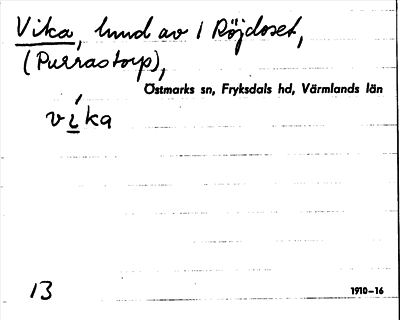 Vika, lund av 1 Röjdoset,
(Purrastorp),
Östmarks sn, Fryksdals hd, Värmlands län
víka
13
1910-16